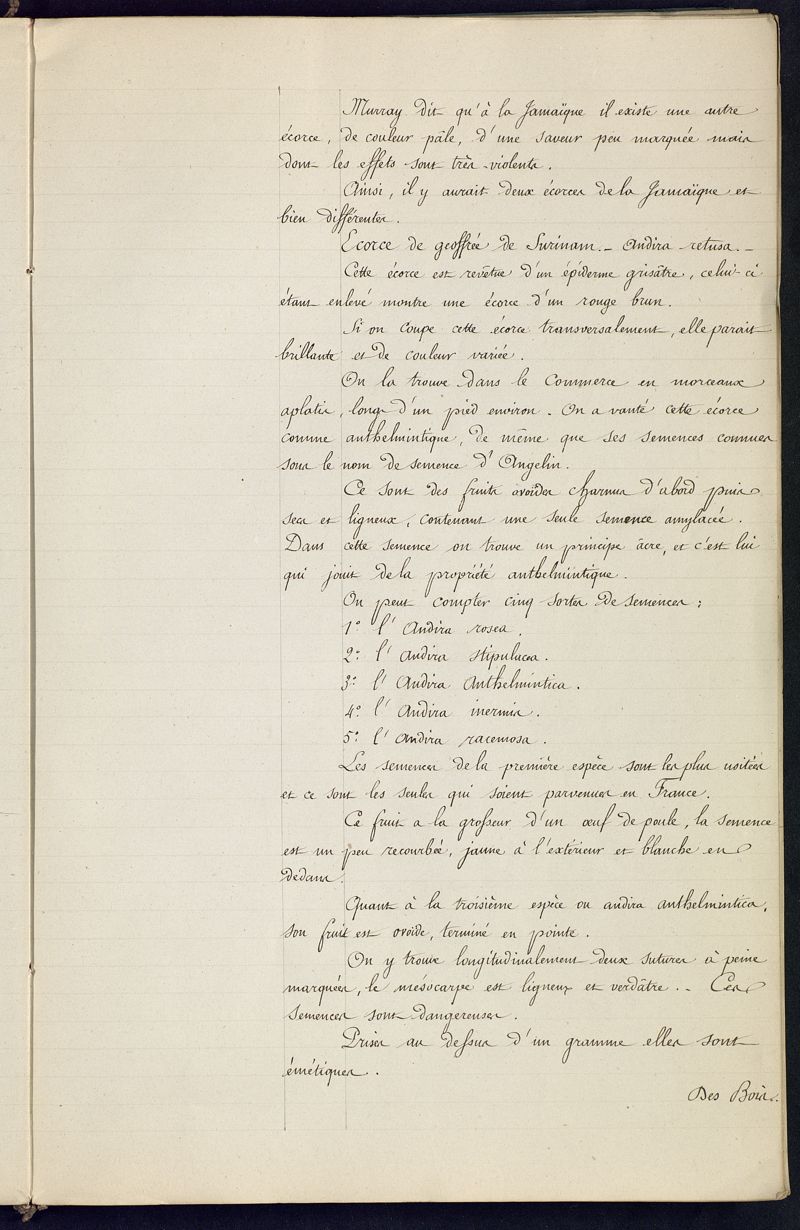 Murray dit qu'à la Jamaïque il existe une autre
écorce, de couleur pâle, d'une saveur peu marquée mais
dont les effets sont très violents.
Ainsi, il y aurait deux écorces de la Jamaïque et
bien différentes.
Ecorce de geoffrée de Surinam. _ Andira retusa. _
Cette écorce est revêtue d'un épiderme grisâtre, celui-ci
étant enlevé montre une écorce d'un rouge brun.
Si on coupe cette écorce transversalement, elle parait
brillante et de couleur variée.
On la trouve dans le commerce en morceaux
aplatis, longs d'un pied environ. On a vanté cette écorce
comme anthelmintique, de même que ses semences connues
sous le nom de semence d'Angelin.
Ce sont des fruits ovoïdes charnus d'abord puis
secs et ligneux, contenant une seule semence amylacée.
Dans cette semence on trouve un principe âcre, et c'est lui
qui jouit de la propriété anthelmintique.
On peut compter cinq sortes de semences ;
1° l'Andira rosea.
2° l'Andira stipulacea.
3° l'Andira Anthelmintica.
4° l'Andira inermis.
5° l'Andira racemosa.
Les semences de la première espèce sont les plus usitées
et ce sont les seules qui soient parvenues en France.
Ce fruit a la grosseur d'un œuf de poule, la semence
est un peu recourbée, jaune à l'extérieur et blanche en
dedans.
Quant à la troisième espèce ou andira anthelmintica,
son fruit est ovoïde, terminé en pointe.
On y trouve longitudinalement deux sutures à peine
marquées, le mésocarpe est ligneux et verdâtre. _ Ces
semences sont dangereuses.
Prises au dessus d'un gramme elles sont
émétiques.
Des Bois.